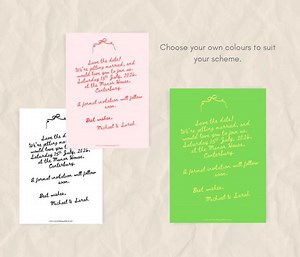 Choose your own colours to suit
your scheme.
Save the date!
We're getting married, and
would love you to join us,
Saturday 15th July, 2026,
at the Manor House,
Canterbury.
A formal invitation will follow
soon.
Best wishes,
Michael & Sarah
Save the da
We're getting marrie
would love you to jo
Saturday 15th July,
at the Manor House
Canterbury.
A formal invitation will follow
soon.
Best wishes,
Michael & Sarah
Save the date!
We're getting married, and
would love you to join us,
Saturday 15th July, 2026,
at the Manor House,
Canterbury.
A formal invitation will follow
soon.
Best wishes,
Michael & Sarah